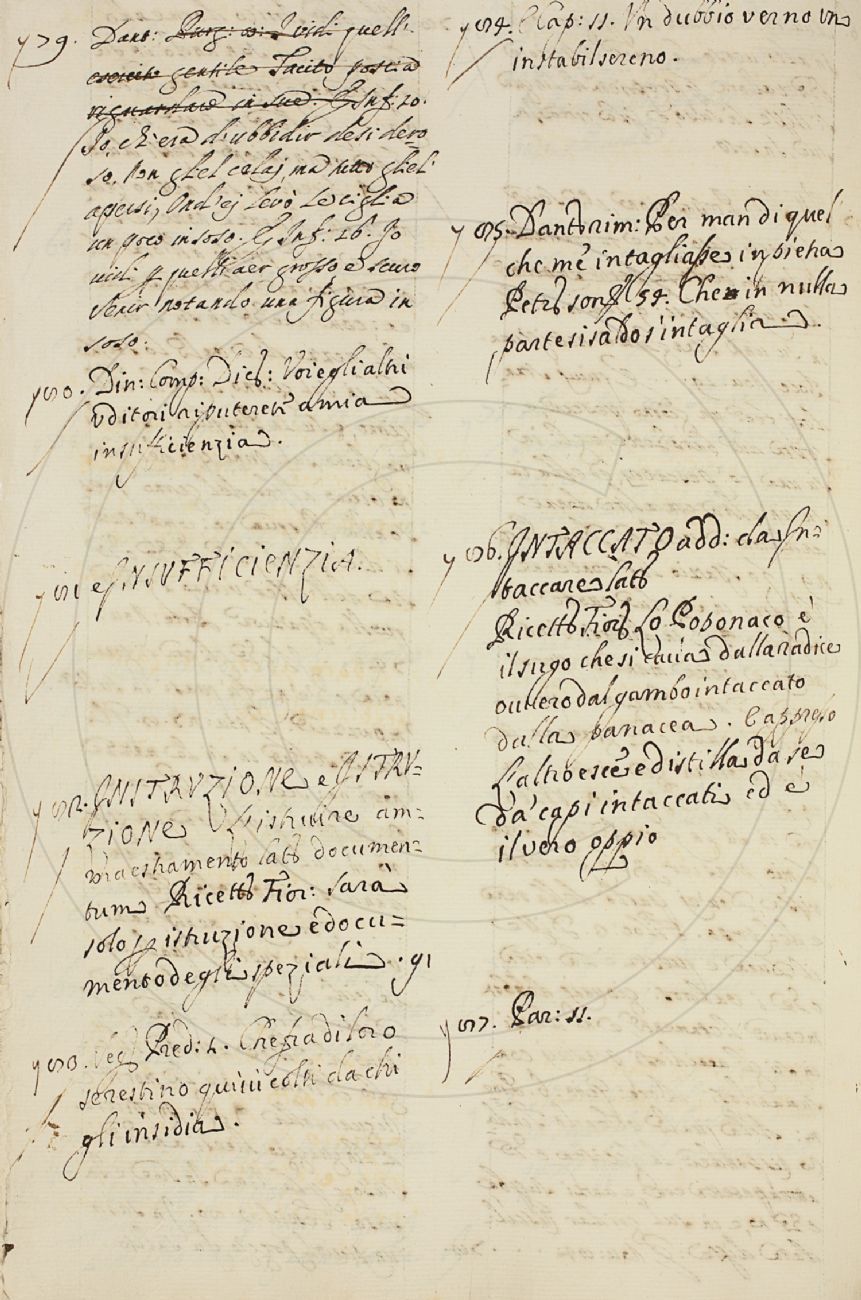 779. Dant: Purg: 8: I vidi quell
esercito gentile Tacito poscia
riguardare in sue. E Inf: 10.
Io, ch'era d'ubbidir desidero=
so, Non gliel celai, ma tutto gliel
apersi, Ond'ei levò le ciglia
un poco in soso. E Inf: 16. Io
vidi p quell'aer grosso e scuro
Venir notando una figura in
soso.
780. Din: Comp: Dicb: Voi e gli altri
uditori riputerete a mia
insufficienzia.
781 e INSUFFICIENZIA.
782. INSTRUZIONE e ISTRU=
ZIONE istruire am=
maestramento latb documen=
tum Ricettb Fior: Sarà
solo p istruzione e docu=
mento degli speziali . 91
783. Pred: 2. Che fra di loro
s'arestino quivi colti da chi
gli insidia.
784. E Cap: 11. Un dubbio verno un
instabil sereno.
785. Dant: rim: Per man di quel
che me intagliasse in pietra
Petrb son 54. Che in nulla
parte si saldo s'intaglia.
786. INTACCATO add: da In=
taccare latb
Ricettb Fiorb Lo Poponaco è
il sugo che si cava dalla radice
ovvero dal gambo intaccato
della panacea. E appresso
L'altro esce e distilla da se
da' capi intaccati ed è
il vero oppio
787. Par: 11.